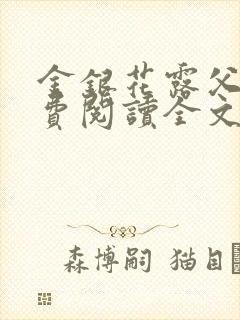 金銀花露父
費閱讀全文
森博嗣 猫目